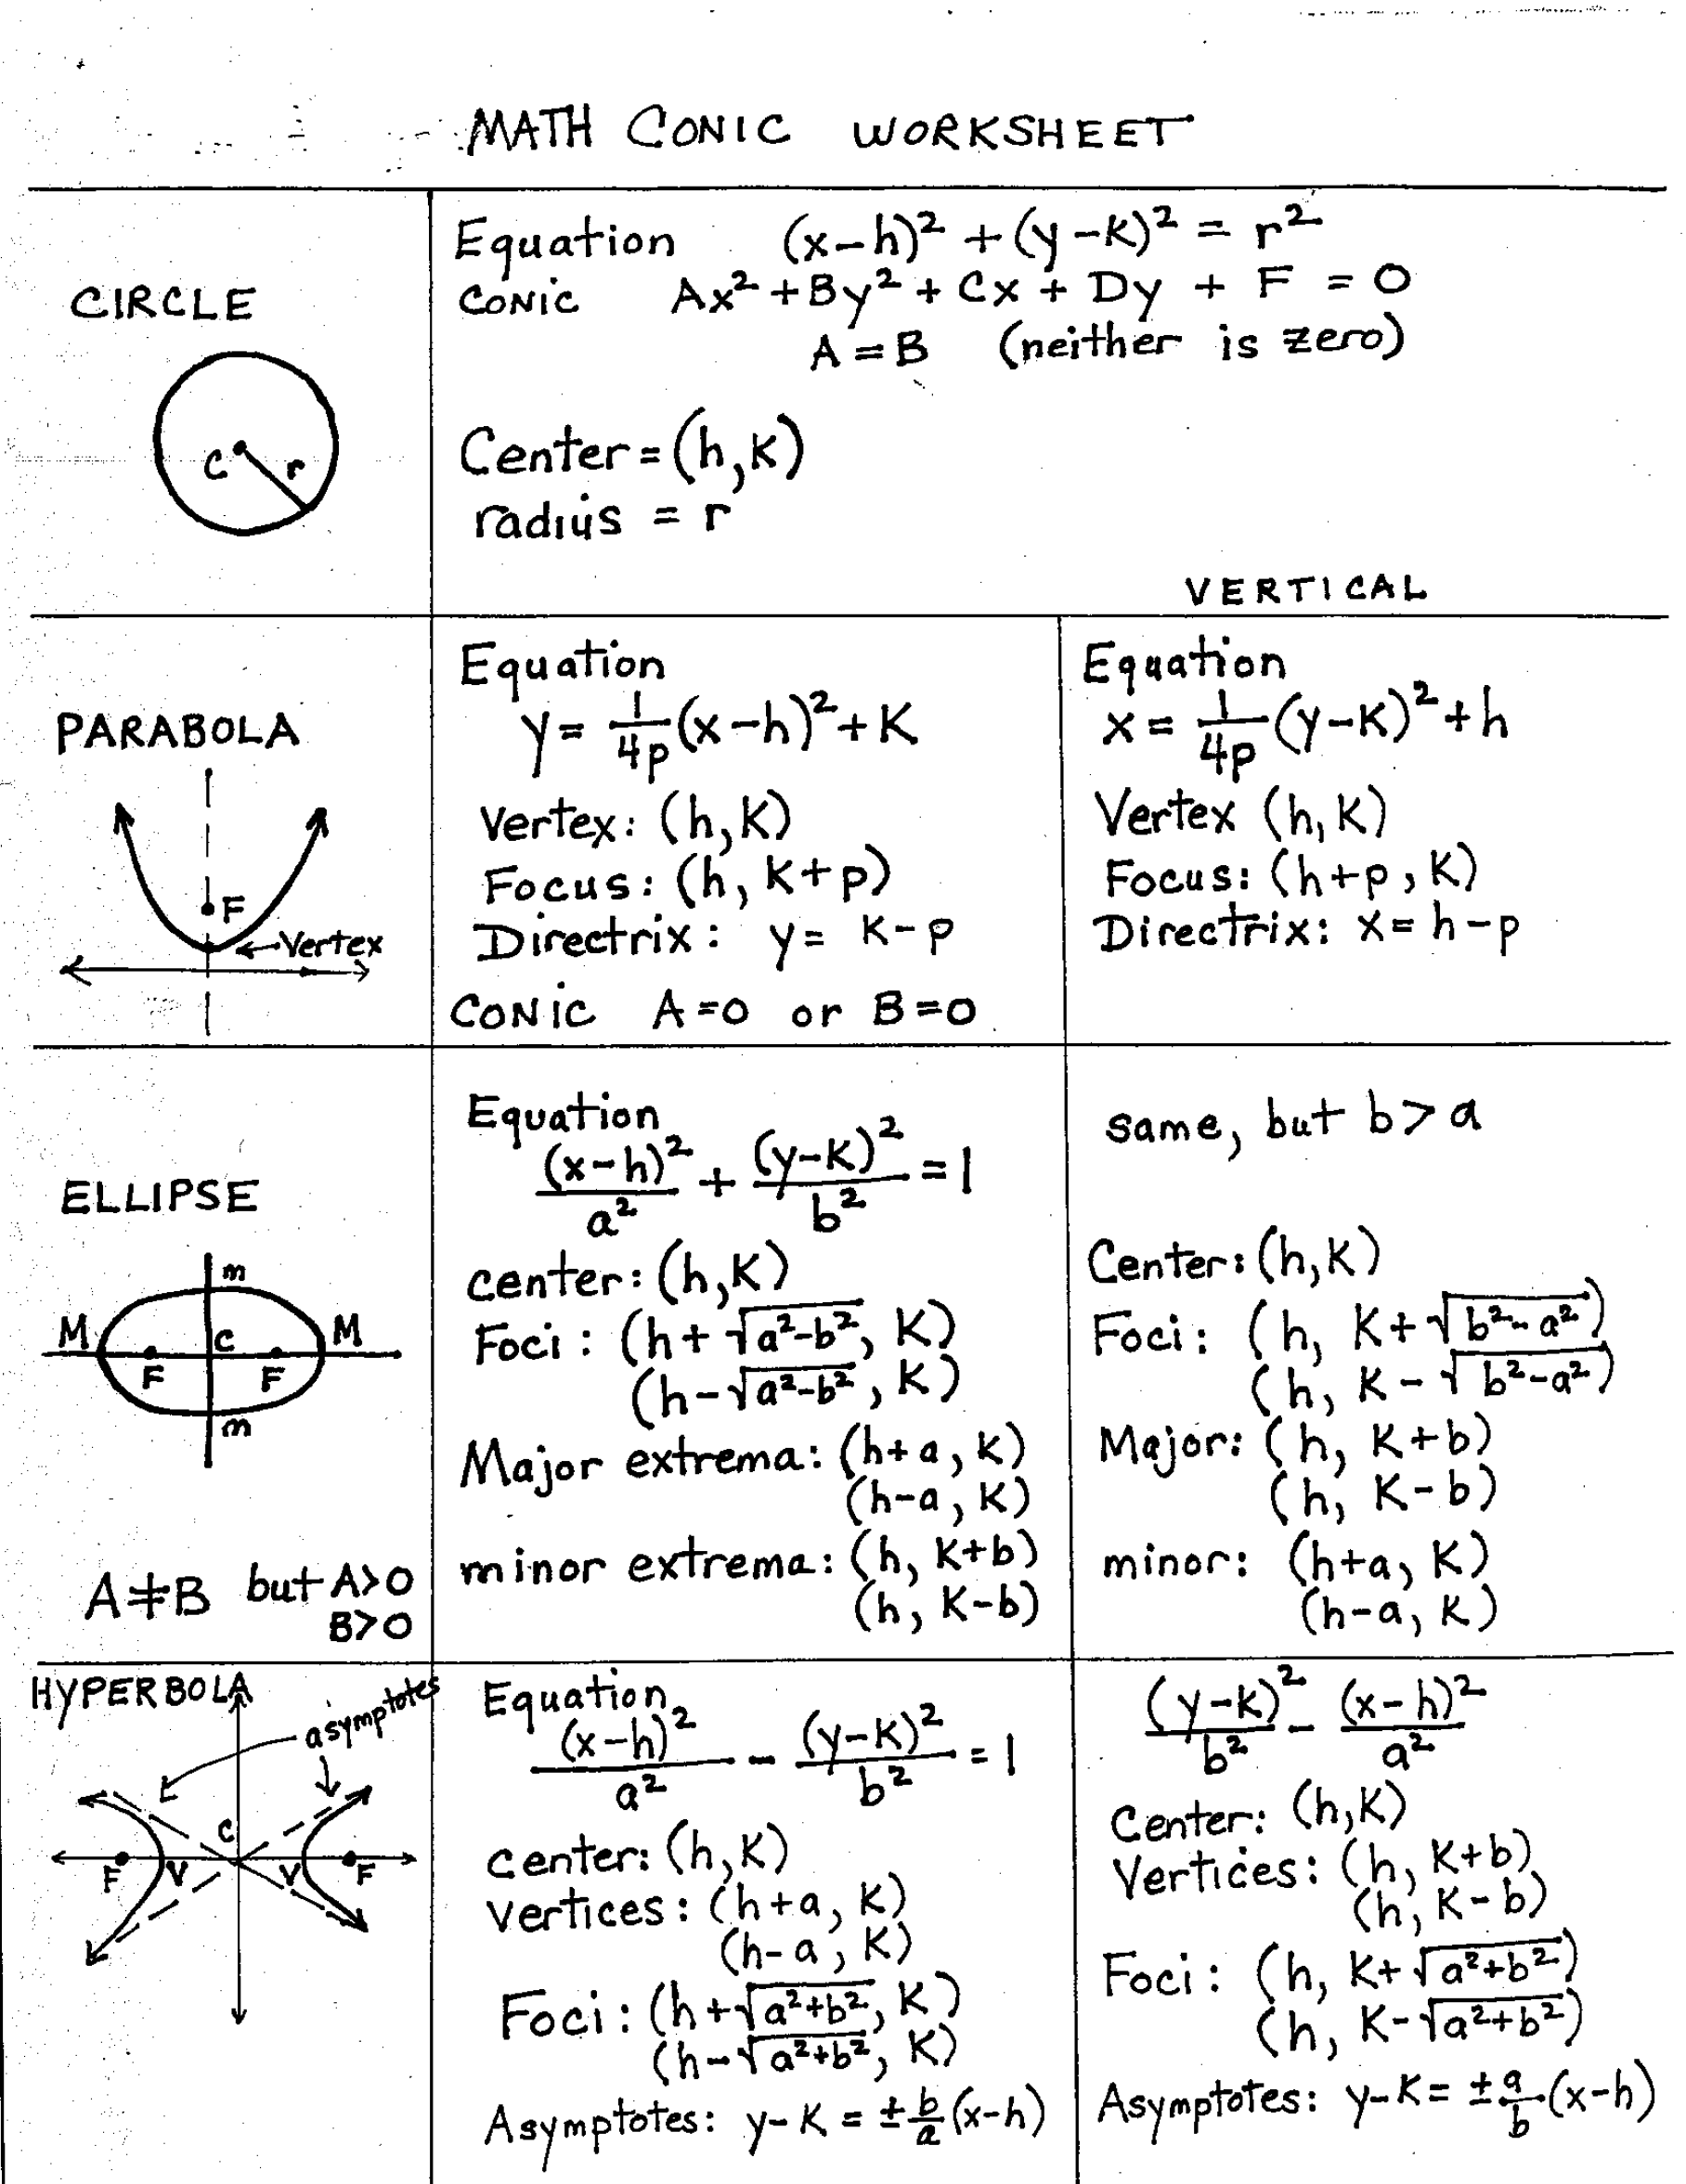 MATH CONIC WORKSHEET
CIRCLE
C r
Equation (x-h)² + (y-K)² = r²
CONIC Ax² + By² + Cx + Dy + F = 0
A = B (neither is zero)
Center = (h,K)
radius = r
VERTICAL
PARABOLA
F
Vertex
Equation
y = 1/4p (x-h)² + K
Vertex: (h,K)
Focus: (h, K+p)
Directrix: y = K-p
CONIC A=0 or B=0
Equation
x = 1/4p (y-K)² + h
Vertex (h,K)
Focus: (h+p, K)
Directrix: x = h-p
ELLIPSE
m
M C M
F F
m
A≠B but A>0
B>0
Equation
(x-h)²/a² + (y-K)²/b² = 1
center: (h,K)
Foci: (h+√a²-b², K)
(h-√a²-b², K)
Major extrema: (h+a, K)
(h-a, K)
minor extrema: (h, K+b)
(h, K-b)
same, but b>a
Center: (h,K)
Foci: (h, K+√b²-a²)
(h, K-√b²-a²)
Major: (h, K+b)
(h, K-b)
minor: (h+a, K)
(h-a, K)
HYPERBOLA
asymptotes
C
F V V F
Equation
(x-h)²/a² - (y-K)²/b² = 1
center: (h,K)
vertices: (h+a, K)
(h-a, K)
Foci: (h+√a²+b², K)
(h-√a²+b², K)
Asymptotes: y-K = ±b/a (x-h)
(y-K)²/b² - (x-h)²/a²
Center: (h,K)
Vertices: (h, K+b)
(h, K-b)
Foci: (h, K+√a²+b²)
(h, K-√a²+b²)
Asymptotes: y-K = ±a/b (x-h)